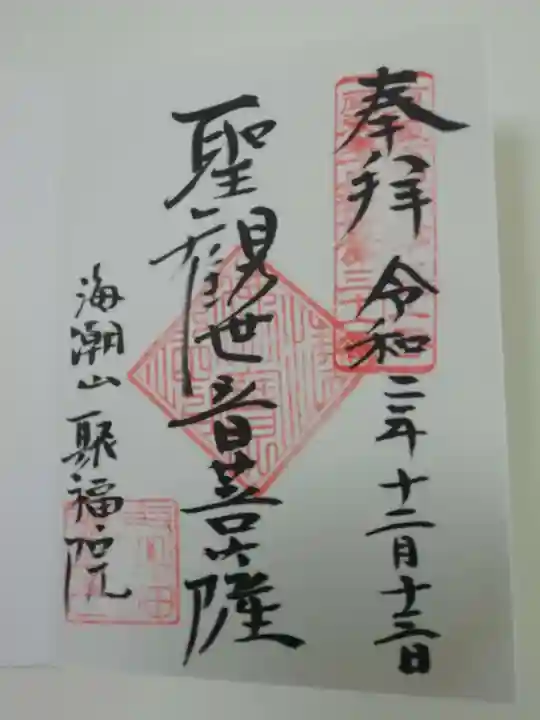 奉拝 令和二年十二月十三日
聖観世音菩薩
海潮山 聚福院